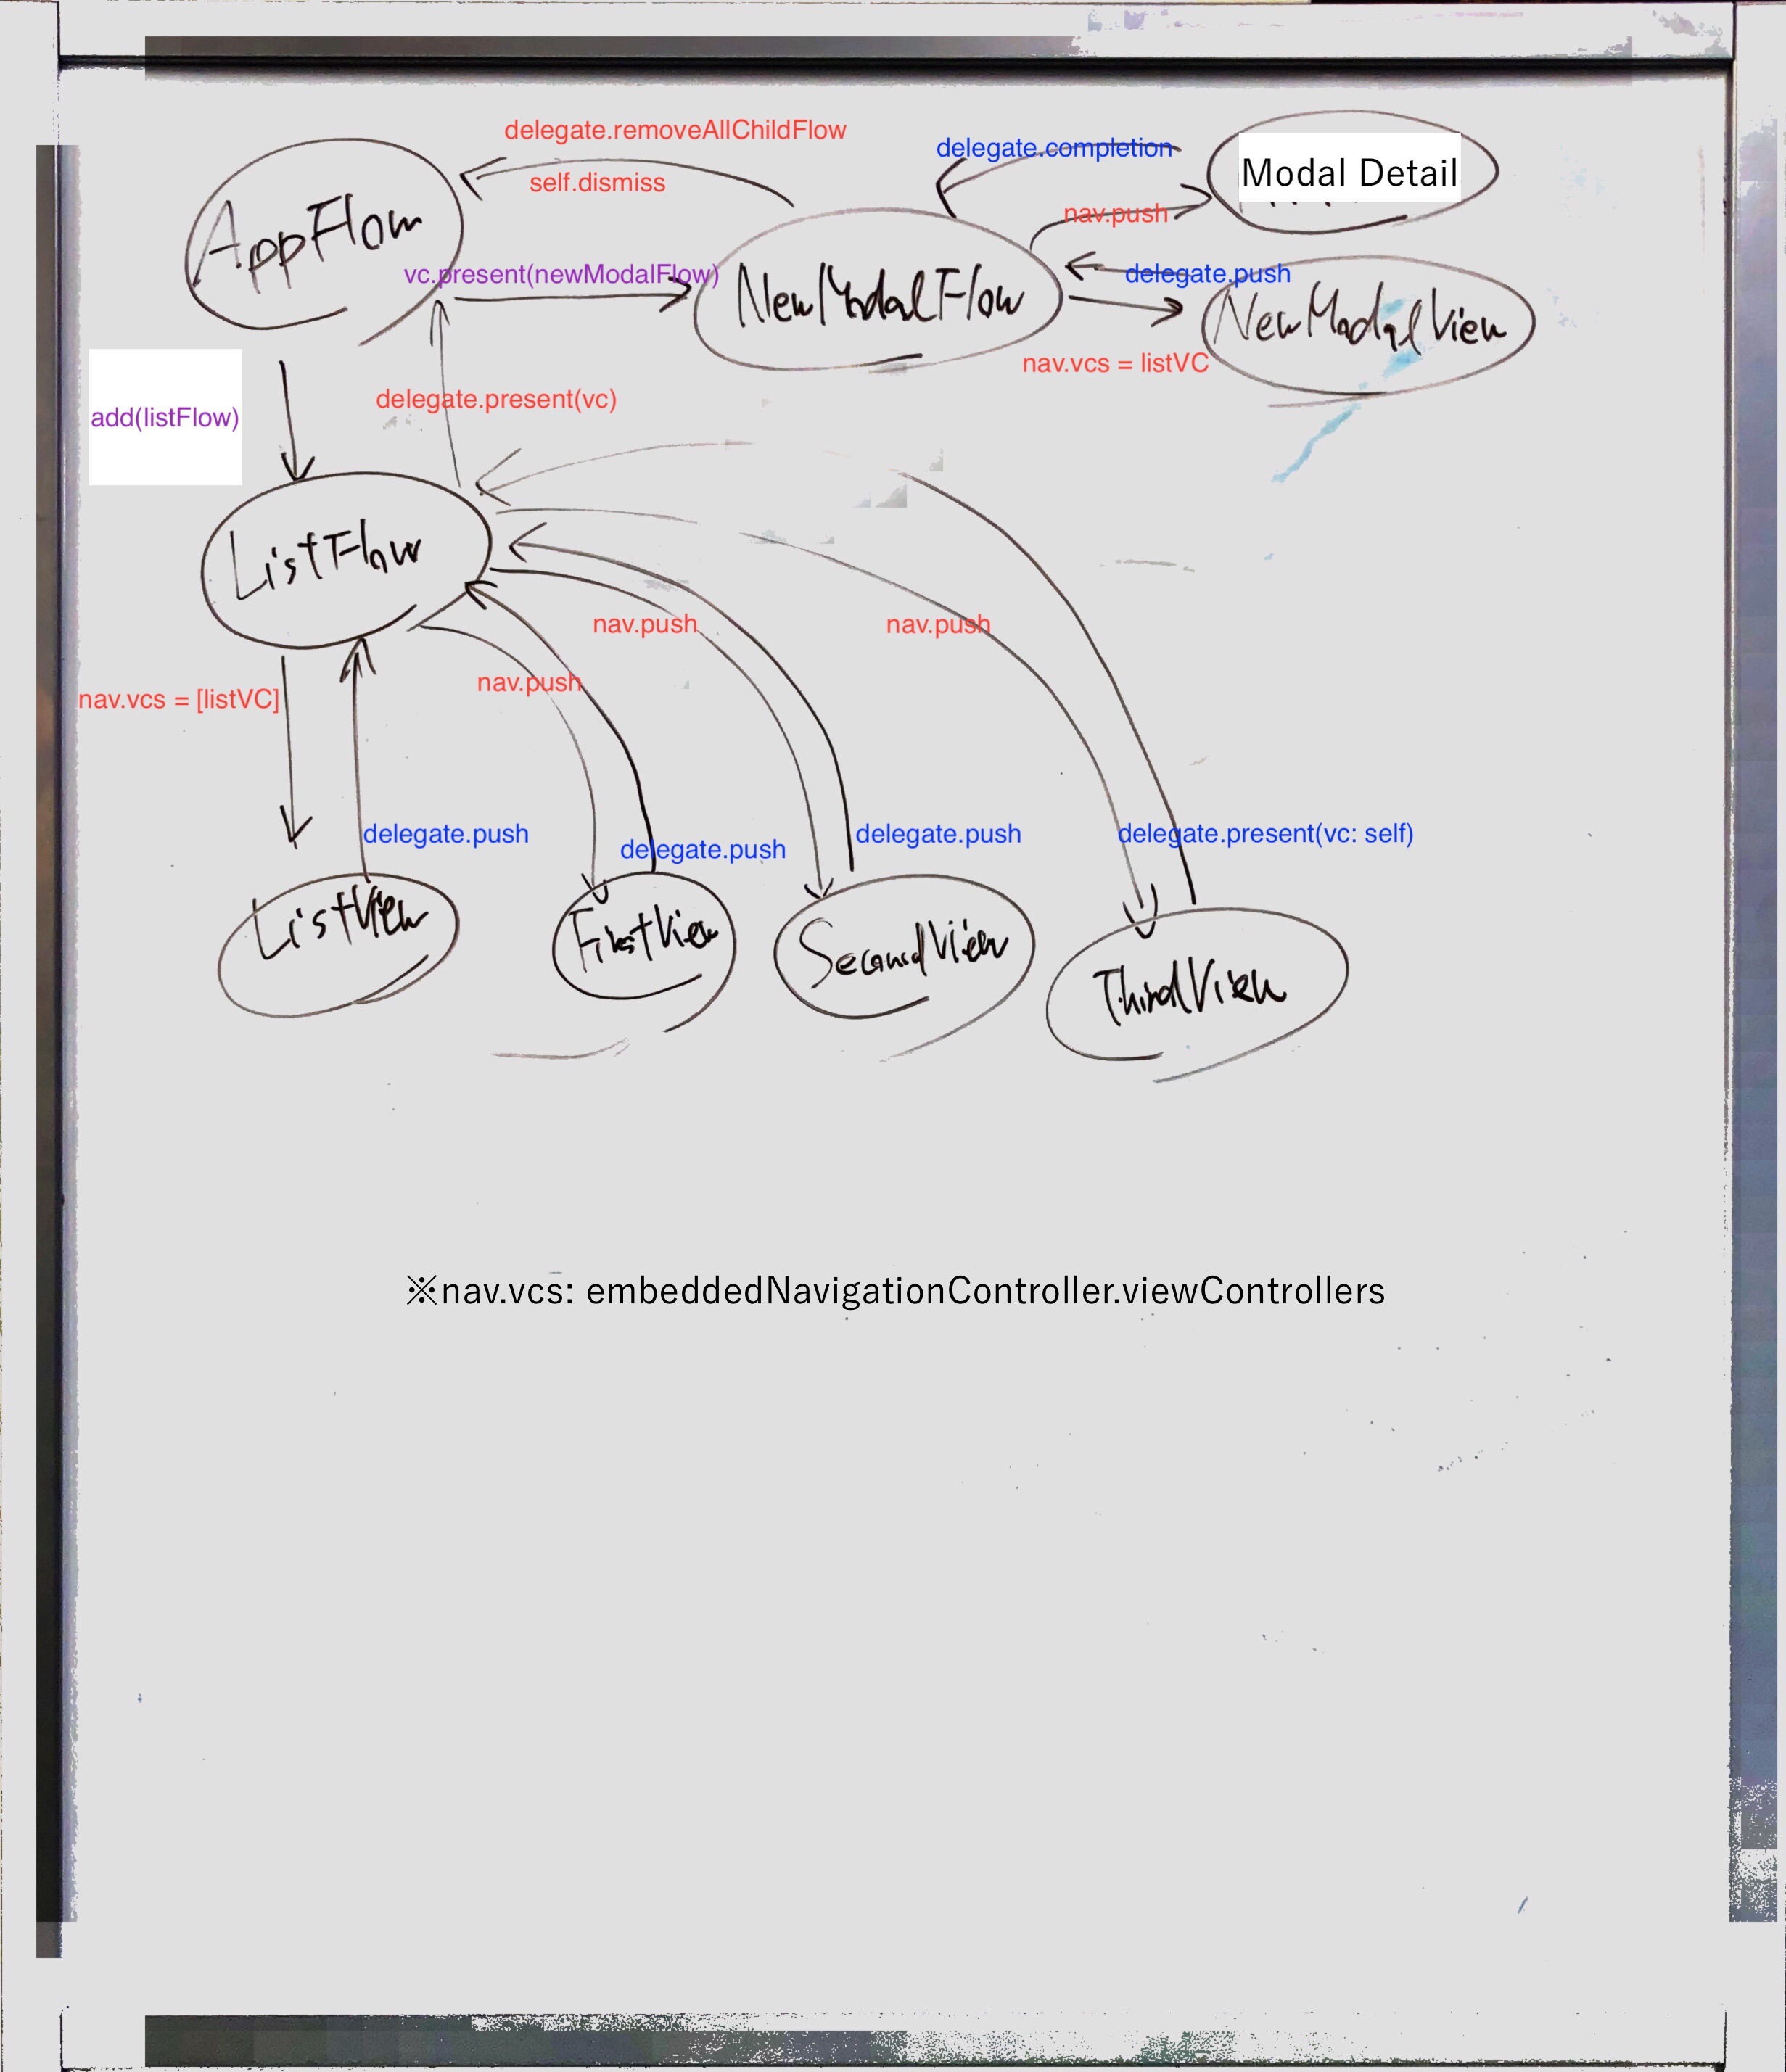 delegate.removeAllChildFlow
self.dismiss
delegate.completion
Modal Detail
nav.push
AppFlow
vc.present(newModalFlow)
NewModalFlow
delegate.push
NewModalView
nav.vcs = listVC
add(listFlow)
delegate.present(vc)
ListFlow
nav.push
nav.push
nav.push
nav.vcs = [listVC]
delegate.push
delegate.push
delegate.push
delegate.present(vc: self)
ListView
FirstView
SecondView
ThirdView
※nav.vcs: embeddedNavigationController.viewControllers